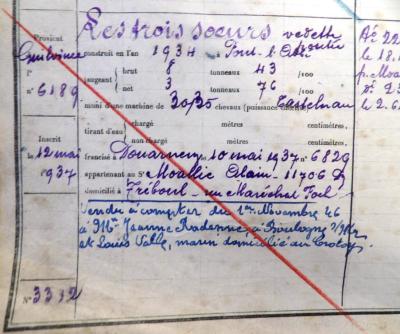 Les trois soeurs vedette
Provient construit en l'an 1934 à Pont-l'Abbé
Guilvinec
brut 8 tonneaux 43 /100
f°
jaugeant
n° 6189 net 3 tonneaux 76 /100
muni d'une machine de 30/35 chevaux (puissance
chargé mètres centimètres,
tirant d'eau
Inscrit non chargé mètres centimètres,
le 12 mai francisé à Douarnenez le 10 mai 1937 n° 6829
1937 appartenant au Sr Moallic Alain - 11706
domicilié à Tréboul rue Maréchal Foch
Vendu à compter du 1er Novembre 46
à Mme Jeanne Radenne, à Boulogne s/Mer
et Louis Valle, marin domicilié au Crotoy.
N° 3312